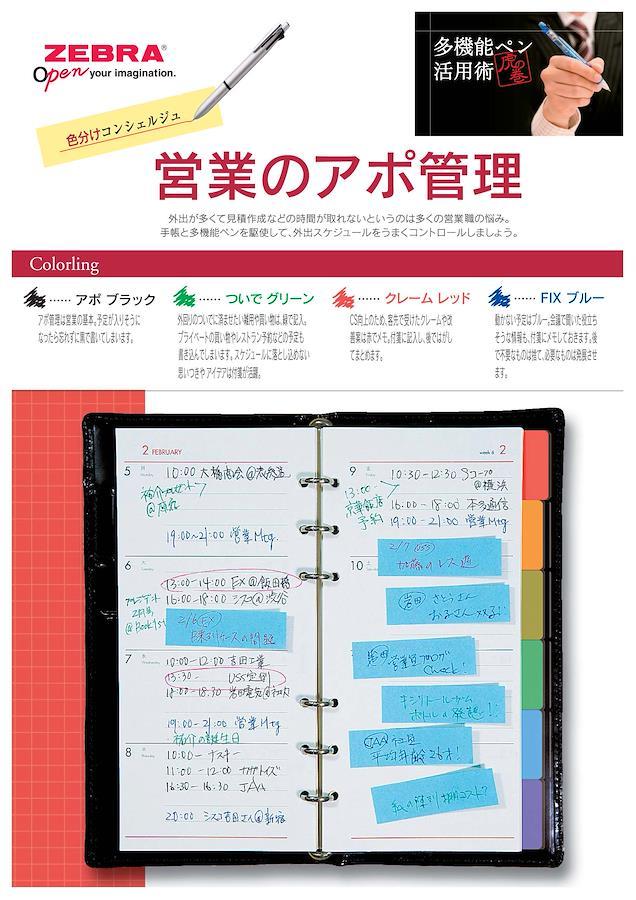 ZEBRA®
Open your imagination.
多機能ペン
活用術 虎の巻
色分けコンシェルジュ
営業のアポ管理
外出が多くて見積作成などの時間が取れないというのは多くの営業職の悩み。
手帳と多機能ペンを駆使して、外出スケジュールをうまくコントロールしましょう。
Colorling
…… アポ ブラック
アポ管理は営業の基本。予定が入りそうに
なったら忘れずに黒で書いてしまいます。
…… ついで グリーン
外回りのついでに済ませたい雑用や買い物は、緑で記入。
プライベートの買い物やレストラン予約などの予定も
書き込んでしまいます。スケジュールに落とし込めない
思いつきやアイデアは付箋が活躍。
…… クレーム レッド
CS向上のため、客先で受けたクレームや改
善案は赤でメモ。付箋に記入し、後ではがし
てまとめます。
…… FIX ブルー
動かない予定はブルー。会議で聞いた役立ち
そうな情報も、付箋にメモしておきます。後
で不要なものは捨て、必要なものは発展させ
ます。
2 FEBRUARY
5 月
Monday
10:00 大橋商会@表参道
@原宿
19:00~21:00 営業Mtg.
6 火
13:00-14:00 EX@飯田橋
16:00-18:00 シスコ@渋谷
2月号
@Book1st
2/6(EX)
陳列ケースの問題
7
Wednesday
10:00-12:00 吉田工業
13:30- USS定例
18:00-18:30 岩田電気@社内
19:00-21:00 営業Mtg
祐介の誕生日
8 木
Thursday
10:00- ナスキー
11:00-12:00
16:30 JAA
20:00 シスコ吉田さん@新宿
week 6 2
9 金
Friday
10:30-12:30 Sコープ
@横浜
13:00
京華飯店
予約
16:00-18:00 本多通信
19:00-21:00 営業Mtg.
10 土
2/7 (USS)
加藤のレス遅
岩田 さとうさん
お子さん
岩田 営業部ブログ
Check!
キシリトールガム
ボトルの発想!!
JAA 社
平均年齢26才!
紙の陳列棚コスト?